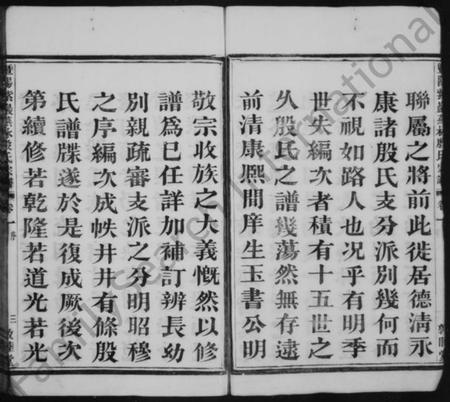 聯屬之將前此徙居德清永
康諸殷氏支分派別幾何而
不視如路人也况乎有明季
世失編次者積有十五世之
久殷氏之譜幾蕩然無存逮
前清康熙間庠生玉書公明
敬宗收族之大義慨然以修
譜為已任詳加補訂辨長幼
別親疏審支派之分明昭穆
之序編次成帙井井有條殷
氏譜牒遂於是復成厥後次
第續修若乾隆若道光若光
FamilySearch International